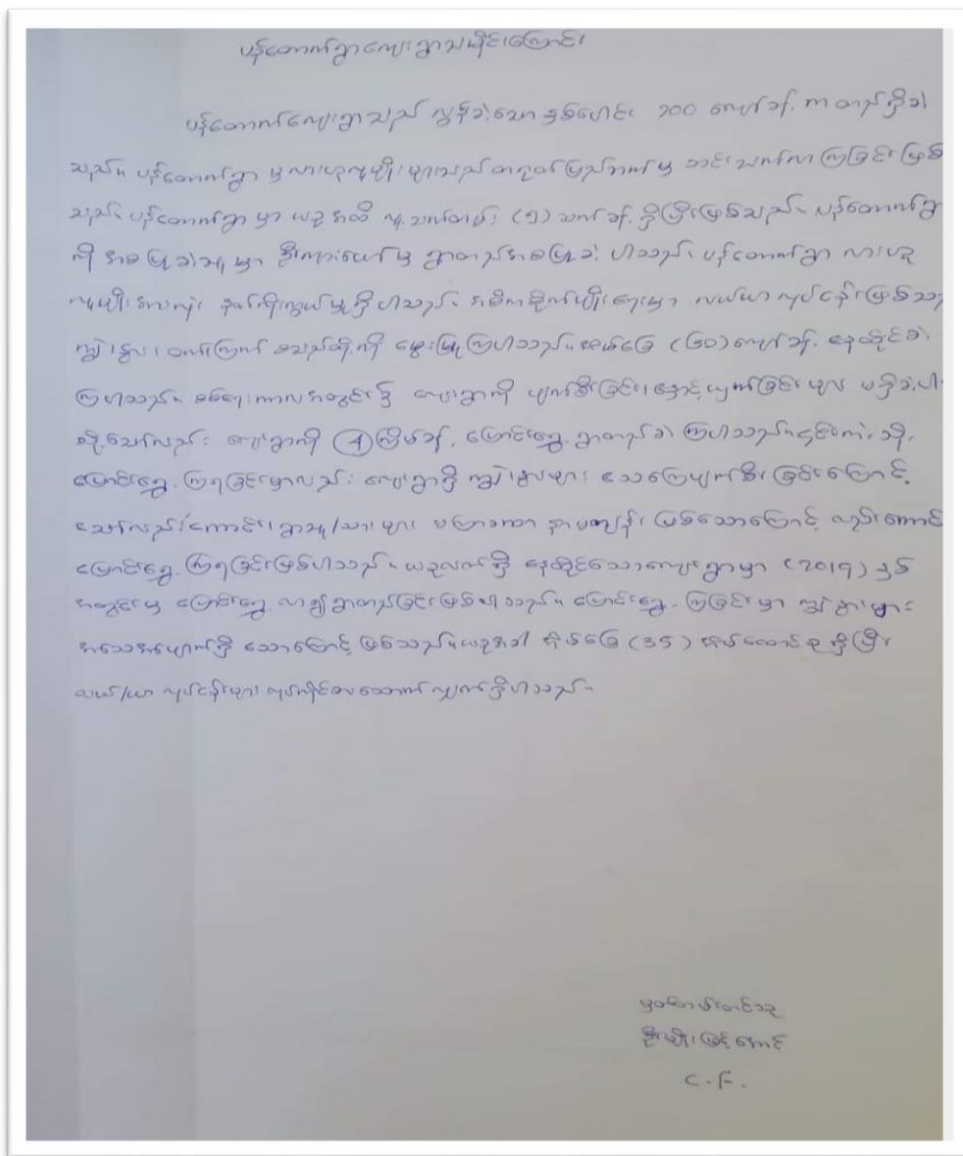 ပန်တောက်ရွာကျေးရွာသမိုင်းကြောင်း
ပန်တောက်ကျေးရွာသည် လွန်ခဲ့သော နှစ်ပေါင်း ၁၀၀ ကျော်ခန့် က တည်ရှိခဲ့
သည်။ ပန်တောက်ရွာ မှ လားဟူလူမျိုး များသည် တရုတ်ပြည်ဘက်မှ ဆင်းသက်လာ ကြခြင်း ဖြစ်
သည်။ ပန်တောက်ရွာ မှာ ယခု အထိ လူ့သက်တမ်း (၅) သက်ခန့် ရှိပြီဖြစ်သည်။ ပန်တောက်ရွာ
ကို အစပြုခဲ့သူ မှာ ဦးကျားပေါ်မှ ရွာတည်အစပြုခဲ့ ပါသည်။ ပန်တောက်ရွာ လားဟူ
လူမျိုး အားလုံး နတ်ကိုးကွယ်မှုရှိပါသည်။ အဓိကစိုက်ပျိုးရေးမှာ လယ်ယာ လုပ်ငန်း ဖြစ်သည်
ကျွဲ၊ နွား၊ ဝက်၊ ကြက် စသည်တို့ကို မွေးမြူကြပါသည်။ အိမ်ခြေ (၆၀) ကျော်ခန့် နေထိုင်ခဲ့
ကြပါသည်။ စစ်ရေးကာလအတွင်း၌ ကျေးရွာကို ဖျက်ဆီးခြင်း၊ နှောင့်ယှက်ခြင်း များ မရှိခဲ့ပါ
သို့သော်လည်း ကျေးရွာကို (၂) ကြိမ်ခန့် ပြောင်းရွှေ့ ရွာတည်ခဲ့ ကြပါသည်။ ၎င်းကဲ့သို့
ပြောင်းရွှေ့ ကြရခြင်းမှာလည်း ကျေးရွာရှိ ကျွဲ၊ နွားများ သေကြေပျက်စီး ခြင်းကြောင့်
သော်လည်းကောင်း၊ ရွာသူ/သား များ မကြာခဏ နာမကျန်း ဖြစ်သောကြောင့် လည်းကောင်း
ပြောင်းရွှေ့ ကြရခြင်းဖြစ်ပါသည်။ ယခုလက်ရှိ နေထိုင်သောကျေးရွာမှာ (၂၀၁၇) နှစ်
အတွင်းမှ ပြောင်းရွှေ့ လာ၍ ရွာတည်ခြင်းဖြစ်ပါသည်။ ပြောင်းရွှေ့ ကြခြင်းမှာ ကျွဲ နွားများ
အသေအပျောက်ရှိ သောကြောင့် ဖြစ်သည်။ ယခုအခါ အိမ်ခြေ (၃၄) အိမ်ထောင်စု ရှိပြီး
လယ်/ယာ လုပ်ငန်းများ လုပ်ကိုင်စားသောက် လျှက်ရှိပါသည်။
မှတ်တမ်းတင်သူ
ဦးမျိုးမြင့်အောင်
C.F.